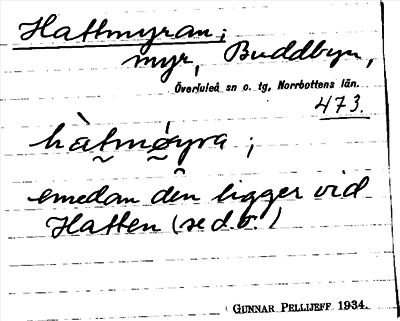 Hattmyran;
myr, Buddbyn,
Överluleå sn o. tg, Norrbottens län.
473.
hàtmøyra;
emedan den ligger vid
Hatten (se d.o.!)
GUNNAR PELLIJEFF 1934.